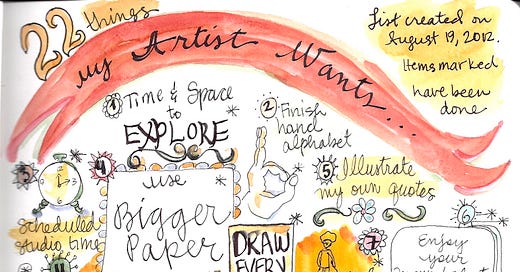 22 things
my Artist Wants...
List created on
August 19, 2012.
Items marked
have been
done
1 Time & Space
to
EXPLORE
2 Finish
hand
alphabet
3
Scheduled
studio time
4
use
Bigger
Paper
5 Illustrate
my own quotes
6
7
Enjoy
your
DRAW
EVERY